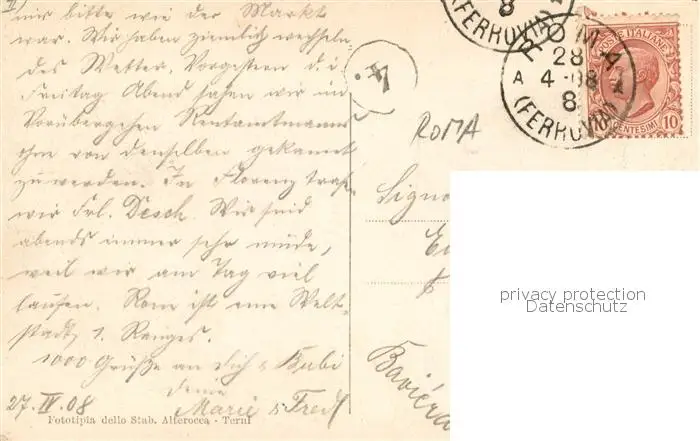 II)
mir bitte wie der Markt
war. Wir haben ziemlich wechseln
des Wetter. Vorgestern d. i.
Freitag Abend sahen wir im
Vorübergehen Rentamtmanns
ohne von denselben gekannt
zu werden. In Florenz trafen
wir Frl. Desch. Wir sind
abends immer sehr müde,
weil wir am Tag viel
laufen. Rom ist eine Welt-
stadt 1. Ranges.
1000 Grüße an dich & Bubi
deine
Marie & Fredl
27. IV. 08
Fototipia dello Stab. Alterocca - Terni
8
(FERROVIA)
4.
ROMA
28
A 4-08
8
(FERROVIA)
POSTE ITALIANE
CENTESIMI 10
ROMA
Signo
Baviera
privacy protection
Datenschutz